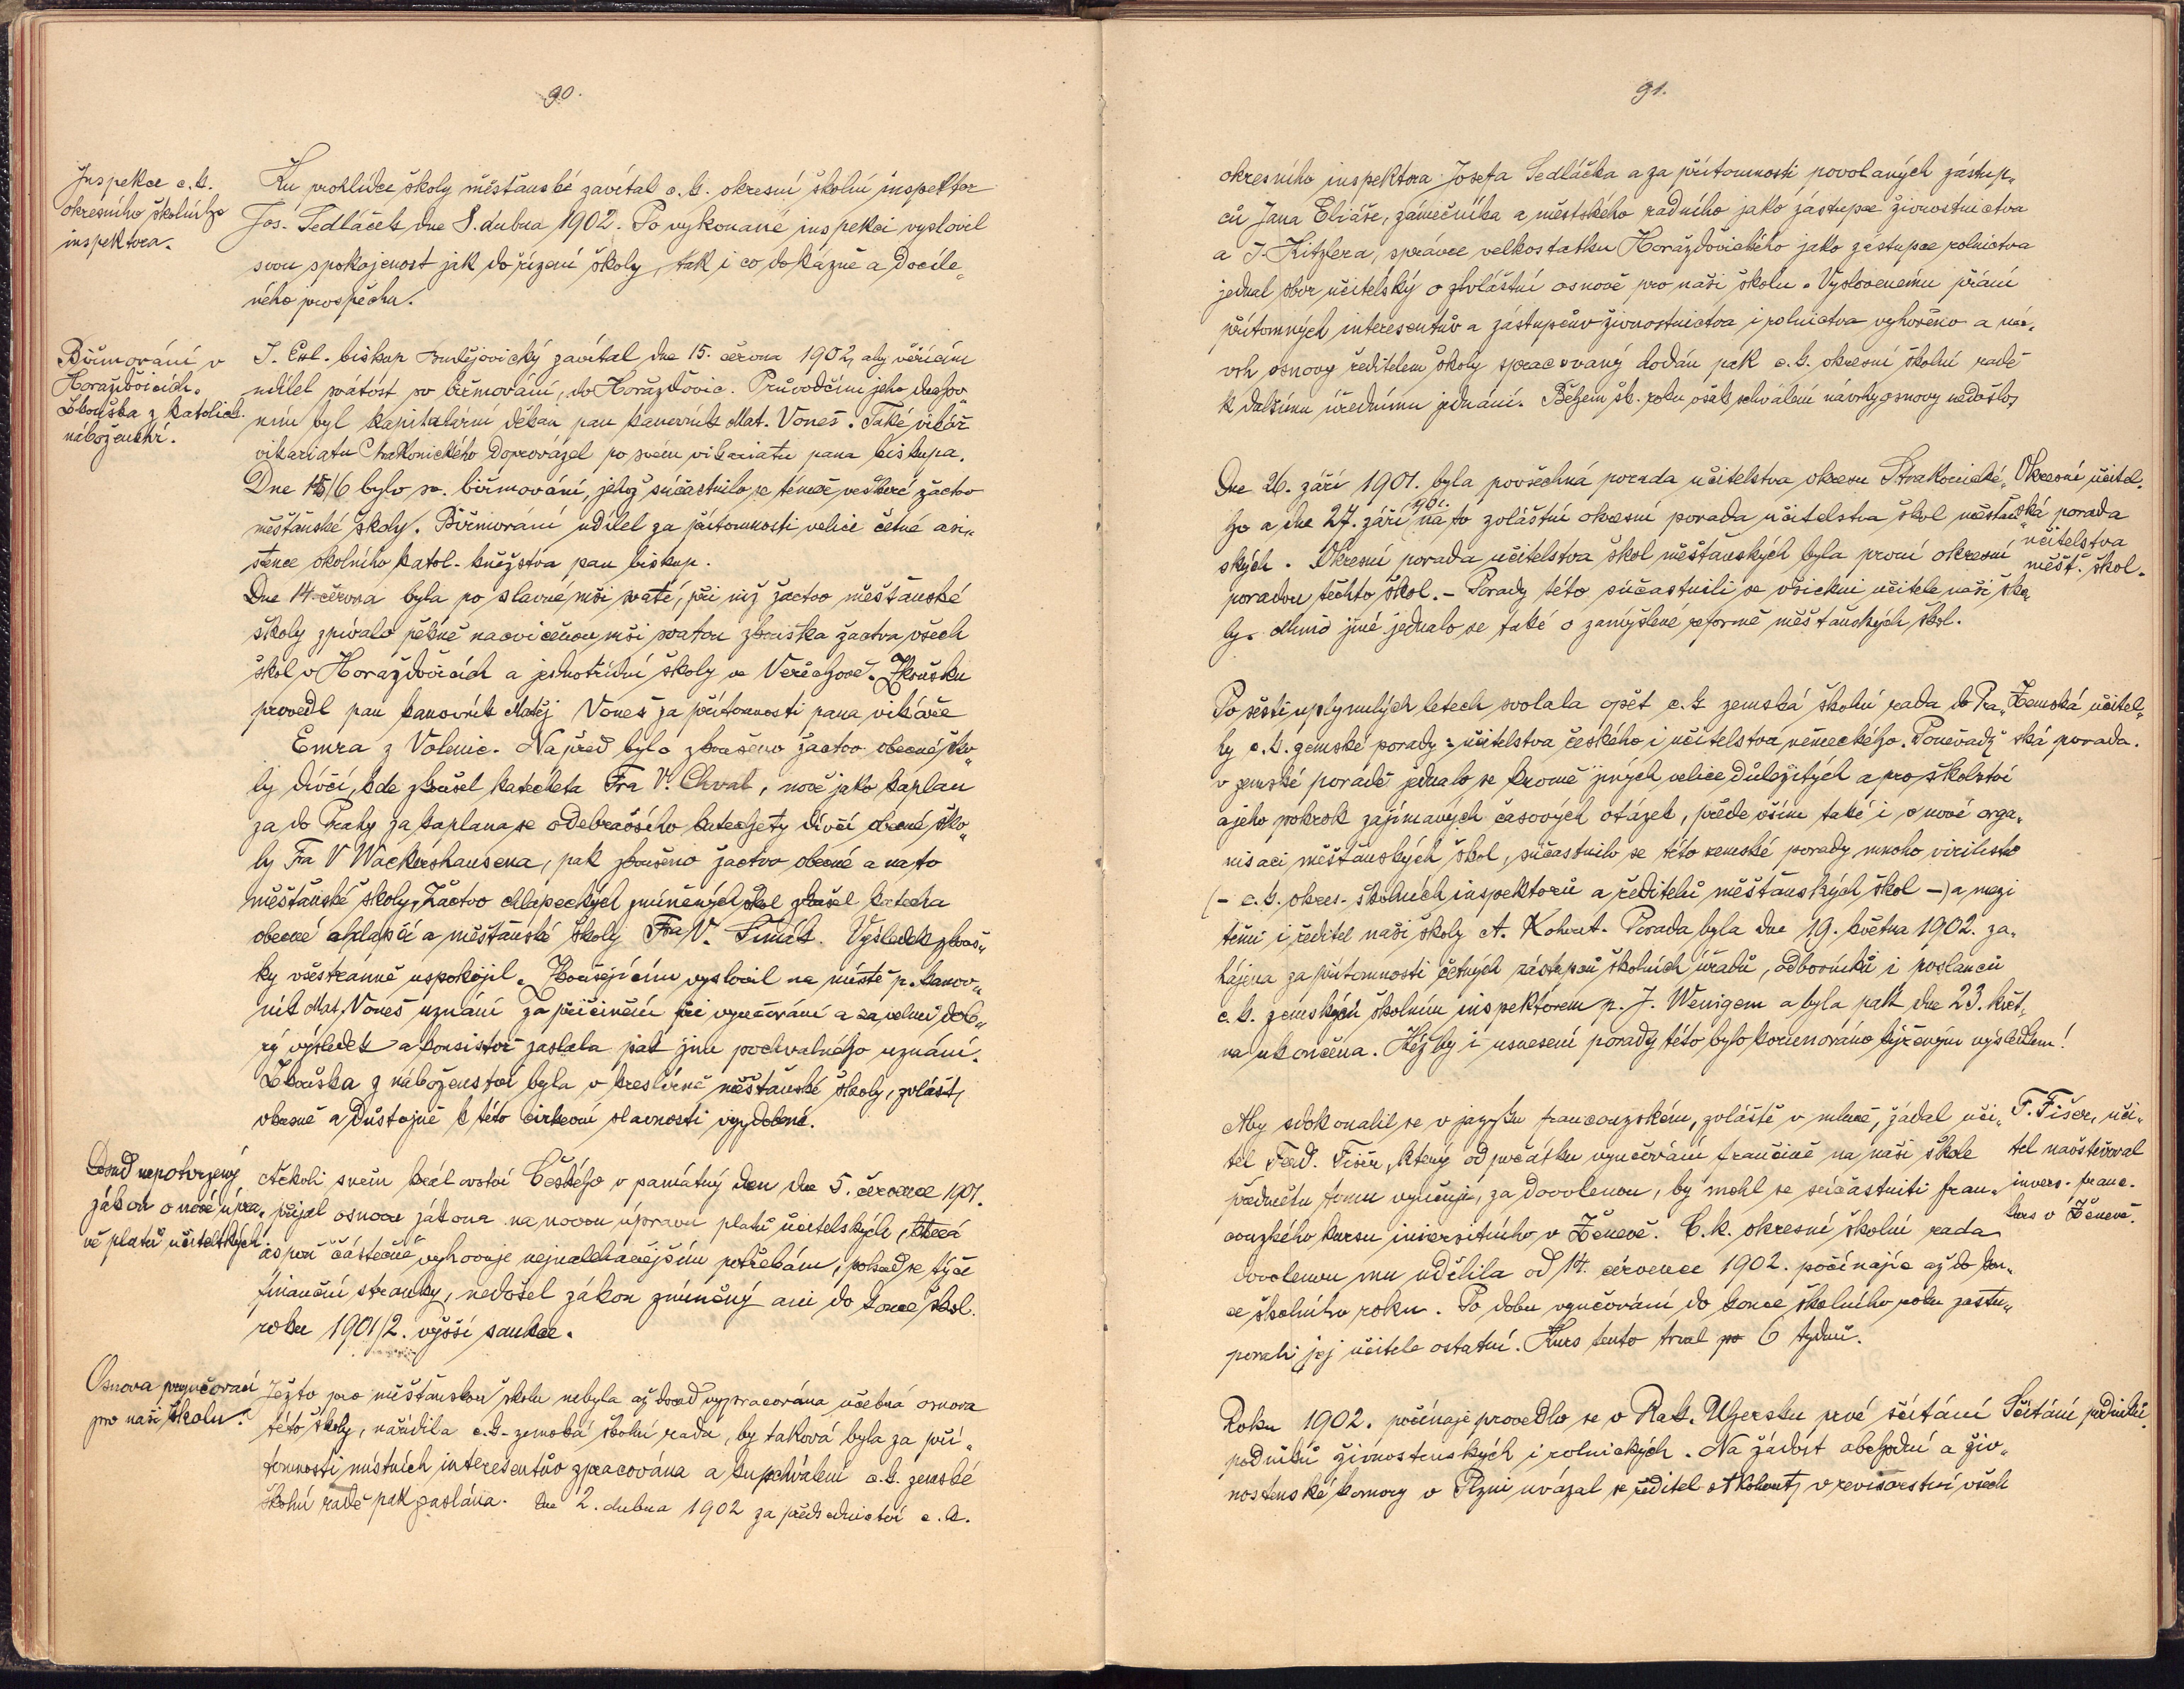 90.
Inspekce c. k.
okresního školního
inspektora.
Ku prohlídce školy měšťanské zavítal c. k. okresní školní inspektor
Jos. Sedláček dne 8. dubna 1902. Po vykonané inspekci vyslovil
svou spokojenost jak do řízení školy, tak i co do kázně a docíle„
ného prospěchu.
Biřmování v
Horažďovicích.
Zkouška z katolick.
náboženství.
J. Exl. biskup Budějovický zavítal dne 15. června 1902, aby věřícím
udílel svátost sv. biřmování, do Horažďovic. Průvodčím jeho duchov„
ním byl kapitulární děkan pan kanovník Mat. Voneš. Také vikář
vikariatu Strakonického doprovázel po svém vikariatu pana biskupa.
Dne 15/6 bylo sv. biřmování, jehož súčastnilo se téměř veškeré žactvo
měšťanské školy. Biřmování udílel za přítomnosti velice četné asi„
stence okolního katol. kněžstva pan biskup.
Dne 14 června byla po slavné mši svaté, při níž žactvo měšťanské
školy zpívalo pěkně nacvičenou mši svatou zkouška žactva všech
škol v Horažďovicích a jednotřídní školy ve Veřechově. Zkoušku
provedl pan kanovník Matěj Voneš za přítomnosti pana vikáře
Emra z Volenic. Napřed bylo zkoušeno žactvo obecné ško„
ly dívčí, kde zkoušel katecheta Fra V. Chval, nově jako kaplan
za do Prahy za kaplana se odebravšího katechety dívčí obecné ško„
ly Fra V Wackershausena, pak zkoušeno žactvo obecné a na to
měšťanské školy. Žactvo chlapeckých zmíněných škol zkoušel katecha
obecné chlapčí a měšťanské školy Fra V. Šimák. Výsledek zkouš„
ky všestranně uspokojil. Zkoušejícím vyslovil na místě p. kanov„
ník Mat. Voneš uznání za přičinění při vyučování a za velmi dob„
rý výsledek a konsistoř zaslala pak jim pochvalného uznání.
Zkouška z náboženství byla v kreslírně měšťanské školy, zvlášť,
vkusně a důstojně k této církevní slavnosti vyzdobené.
Dosud nepotvrzený
zákon o nové úpra„
vě platů učitelských
Ačkoli sněm království Českého v památný den dne 5. července 1901.
přijal osnovu zákona na novou úpravu platů učitelských, která
aspoň částečně vyhovuje nejnaléhavějším potřebám, pokud se týče
finanční stránky, nedošel zákon zmíněný ani do konce škol.
roku 1901/2. vyšší sankce.
Osnova vyučovací
pro naši školu.
Ježto pro měšťanskou školu nebyla až dosud vypracována učebná osnova
této školy, nařídila c. k. zemská školní rada, by taková byla za pří„
tomnosti místních interesentův zpracována a ku schválení c. k. zemské
školní radě pak zaslána. Dne 2. dubna 1902 za předsednictví c. k.
91.
okresního inspektora Josefa Sedláčka a za přítomnosti povolaných zástup„
cův Jana Eliáše, zámečníka a městského radního jako zástupce živnostnictva
a J. Kitzlera, správce velkostatku Horažďovického jako zástupce rolnictva
jednal sbor učitelský o zvláštní osnově pro naši školu. Vyslovenému přání
přítomných interesentův a zástupcův živnostnictva i rolnictva vyhověno a ná„
vrh osnovy ředitelem školy spracovaný dodán pak c. k. okresní školní radě
k dalšímu úřednímu jednání. Během šk. roku však schválení návrhy osnovy nedošlo,
Dne 26. září 1901. byla povšechná porada učitelstva okresu Strakonické„
ho a dne 27. září 1901. na to zvláštní okresní porada učitelstva škol měšťan„
ských. Okresní porada učitelstva škol měšťanských byla první okresní
poradou těchto škol. – Porady této súčastnili se všickni učitelé naší ško„
ly. Mimo jiné jednalo se také o zamýšlené reformě měšťanských škol.
Okresní učitel.
ská porada
učitelstva
měšť. škol.
Po šesti uplynulých letech svolala opět c. k. zemská školní rada do Pra„
hy c. k. zemské porady: učitelstva českého i učitelstva německého. Poněvadž
v zemské poradě jednalo se kromě jiných velice důležitých a pro školství
a jeho pokrok zajímavých časových otázek, přede vším také i o nové orga„
nisaci měšťanských škol, súčastnilo se této zemské porady mnoho virilistů
(– c. k. okres. školních inspektorů a ředitelů měšťanských škol –) a mezi
těmi i ředitel naší školy A. Kohout. Porada byla dne 19. května 1902. za„
hájena za přítomnosti četných zástupců školních úřadů, odborníků i poslanců
c. k. zemským školním inspektorem p. J. Wenigem a byla pak dne 23. květ„
na ukončena. Kéž by i usnesení porady této bylo korunováno kýženým výsledkem!
Zemská učitel„
ská porada.
Aby zdokonalil se v jazyku francouzském, zvláště v mluvě, žádal uči„
tel Ferd. Fišer, který od počátku vyučování frančině na naší škole
předmětu tomu vyučuje, za dovolenou, by mohl se súčastniti fran„
couzkého kursu universitního v Ženevě. C. k. okresní školní rada
dovolenou mu udělila od 14. července 1902. počínajíc až do kon„
ce školního roku. Po dobu vyučování do konce školního roku zastu„
povali jej učitelé ostatní. Kurs tento trval po 6 týdnů.
F. Fišer, uči„
tel navštěvoval
univers. franc.
kurs v Ženevě.
Roku 1902. počínaje provedlo se v Rak. Uhersku prvé sčítání
podniků živnostenských i rolnických. Na žádost obchodní a živ„
nostenské komory v Plzni uvázal se ředitel A Kohout, v revisorství všech
Sčítání podniků.